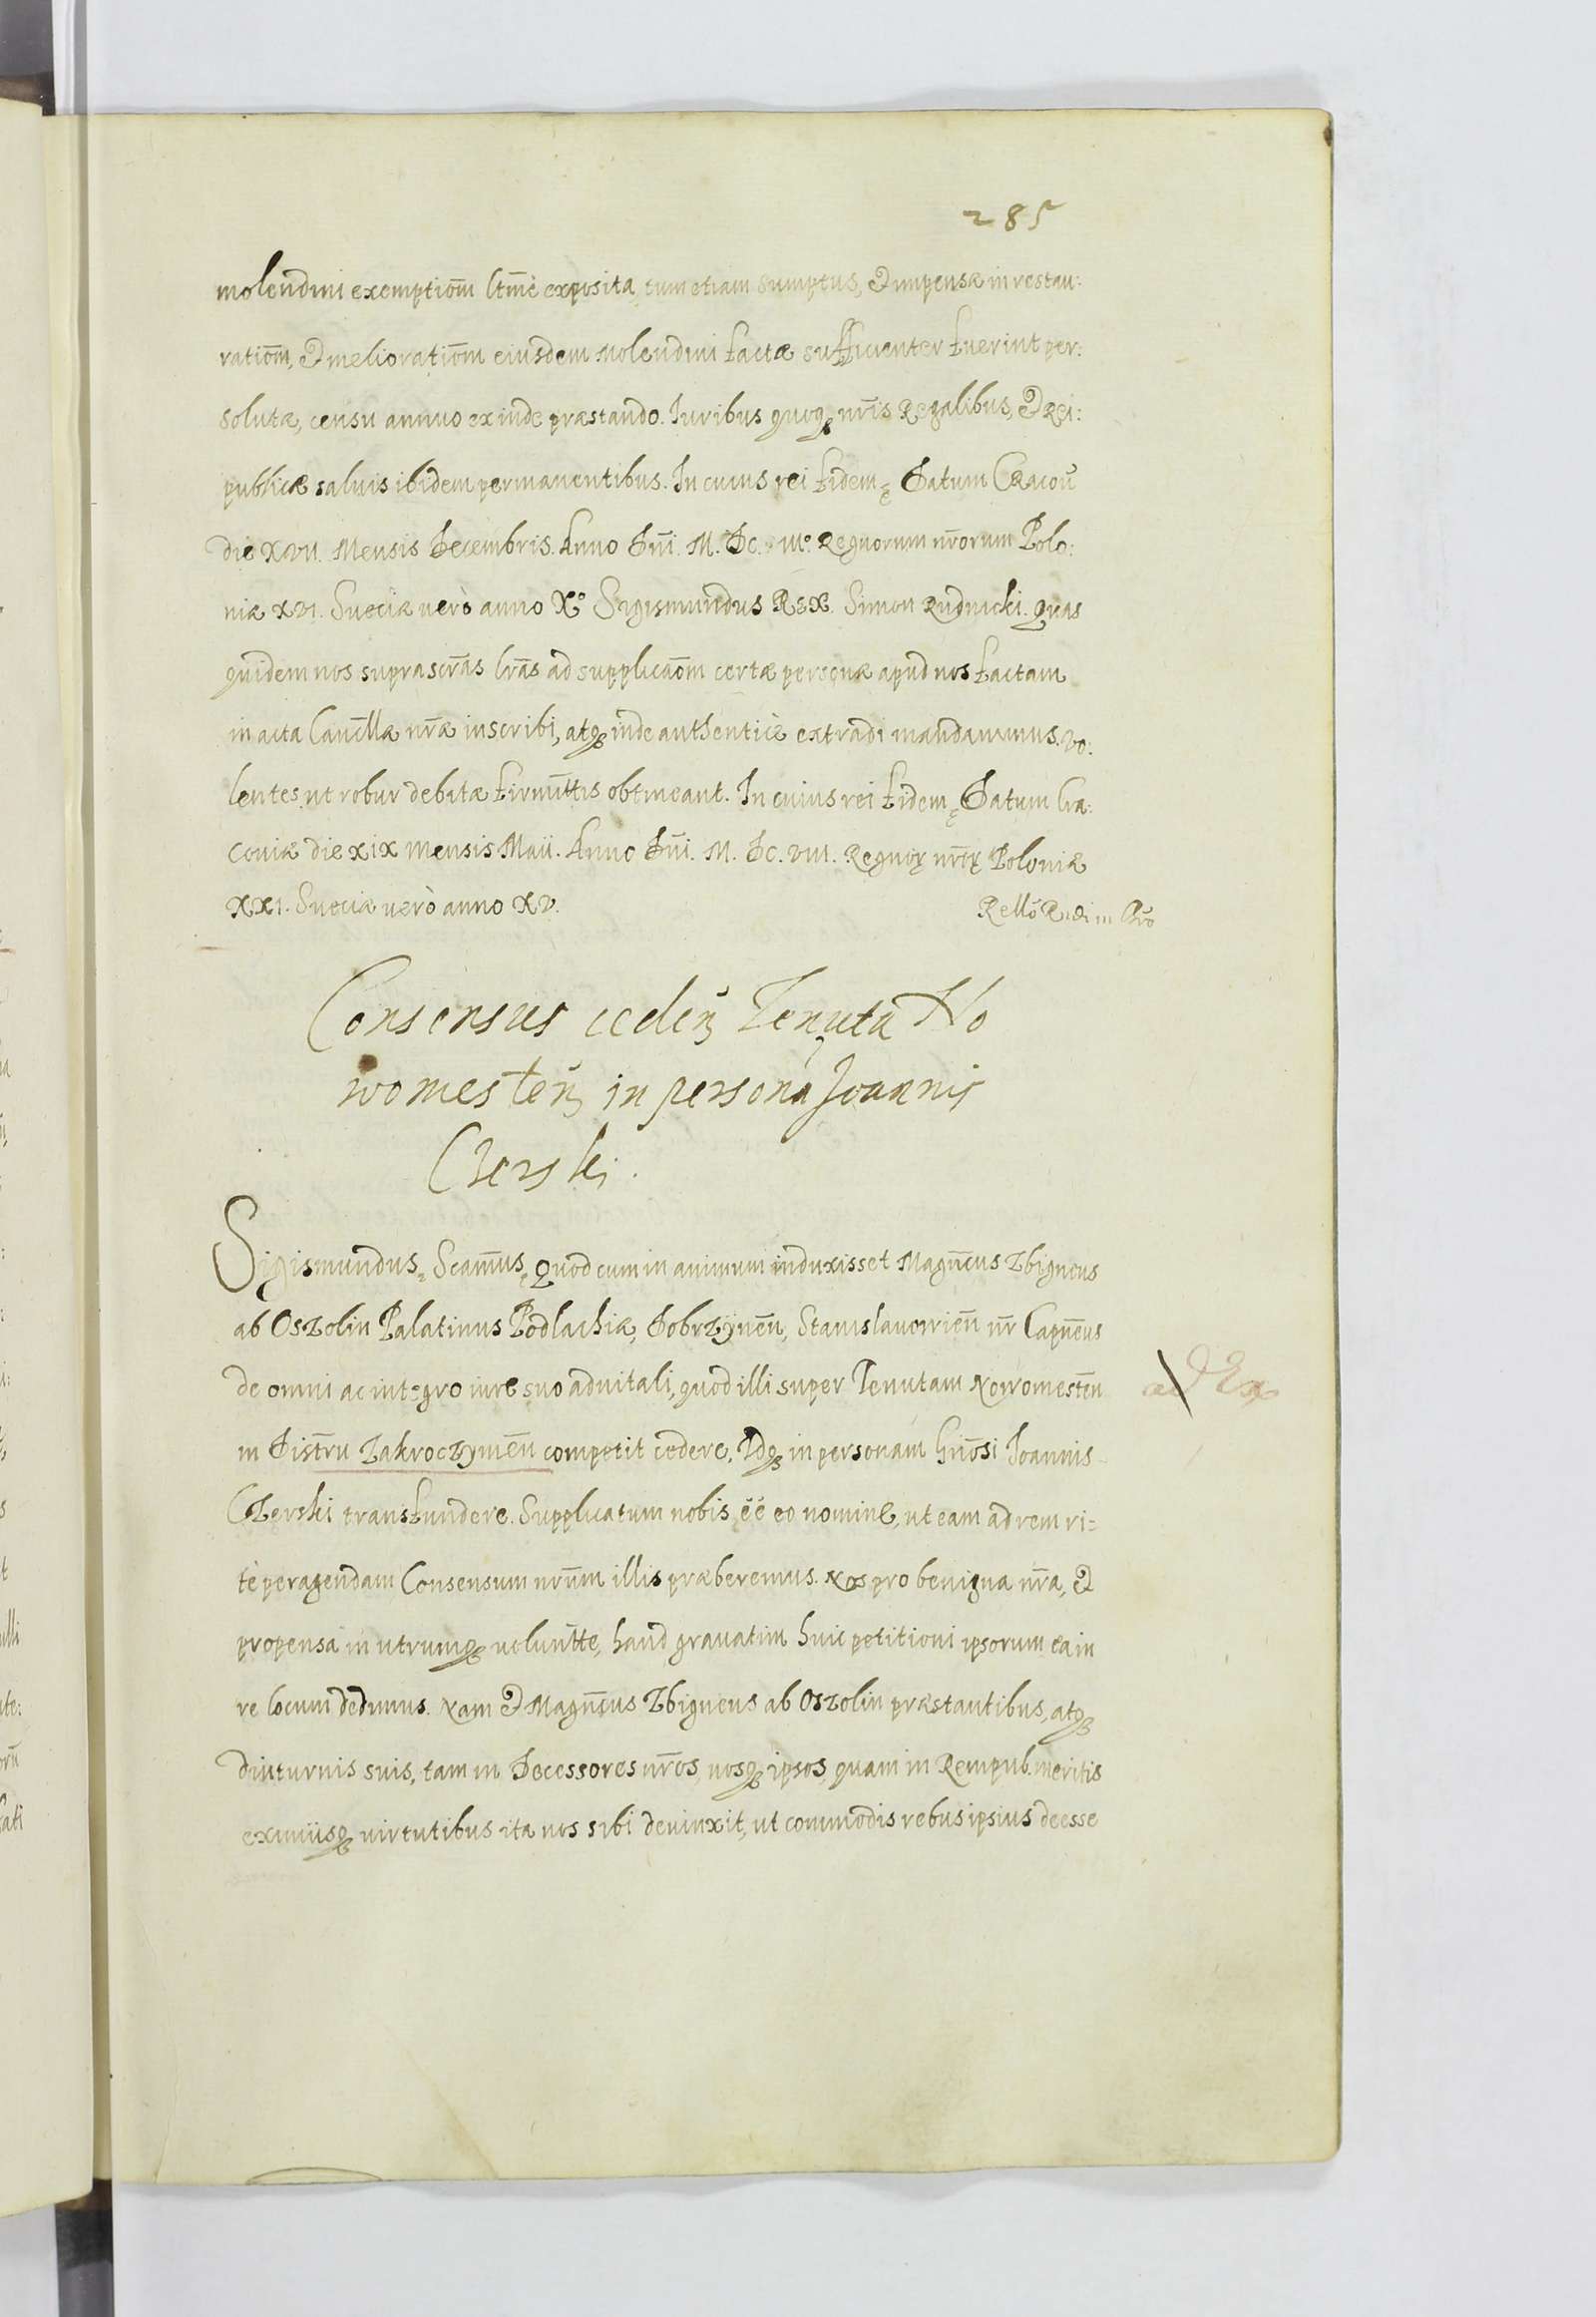 285
molendini exemptiom̄ ltm̄è exposita, tum etiam sumptus, et impensæ in restau:
ratiom̄, et melioratiom̄ eiusdem Molendini factæ sufficienter fuerint per:
solutæ, censu annuo exinde præstando. Iuribus quoqꝫ nr̄is Regalibus, et Rei:
publicæ saluis ibidem permanentibus. In cuius rei fidem ę Datum Cracoū
die XVII. Mensis Decembris. Anno Dn̄i. M. DC. IIIº. Regnorum nr̄orum Polo:
niæ XVI. Sueciæ verò anno Xº Sigismundus REX. Simon Rudnicki. Quas
quidem nos suprascr̄as lr̄as ad supplicaōm certæ personæ apud nos factam
in acta Canc̄llæ nr̄æ inscribi, atqꝫ inde authenticè extradi mandauimus. Vo:
lentes, ut robur debitæ firmītt̄is obtineant. In cuius rei fidem ę Datum Cra:
couiæ die XIX Mensis Maii. Anno Dn̄i. M. DC. VIII. Regnoꝝ nr̄oꝝ Poloniæ
XXI. Sueciæ verò anno XV.
Rello
Consensus cedeñ Tenuta No
womesteñ in personā Joannis
Czerski.
Sigismundus ę Scam̄us ę Quod cum in animum induxisset Magn̄cus Zbigneus
ab Oszolin Palatinus Podlachiæ, Dobrzÿnēn, Stanislauowien̄ nr̄ Capn̄eus
de omni ac integro iure suo aduitali, quod illi super Tenutam Nowomestēn
in Distr̄u Zakroczymēn competit cedere, Idqꝫ in personam Gn̄osi Joannis
Czerski transfundere. Supplicatum nobis ēē eo nomine, ut eam ad rem ri=
tè peragendam Consensum nr̄um illis præberemus. Nos pro benigna nr̄a, et
propensa in utrumqꝫ volunt̄te, haud grauatim huic petitioni ipsorum ea in
re locum dedimus. Nam et Magn̄cus Zbigneus ab Oszolin præstantibus, atqꝫ
diuturnis suis, tam in Decessores nr̄os, nosqꝫ ipsos, quam in Rempub. meritis
eximiisqꝫ virtutibus ita nos sibi deuinxit, ut commodis rebus ipsius deesse